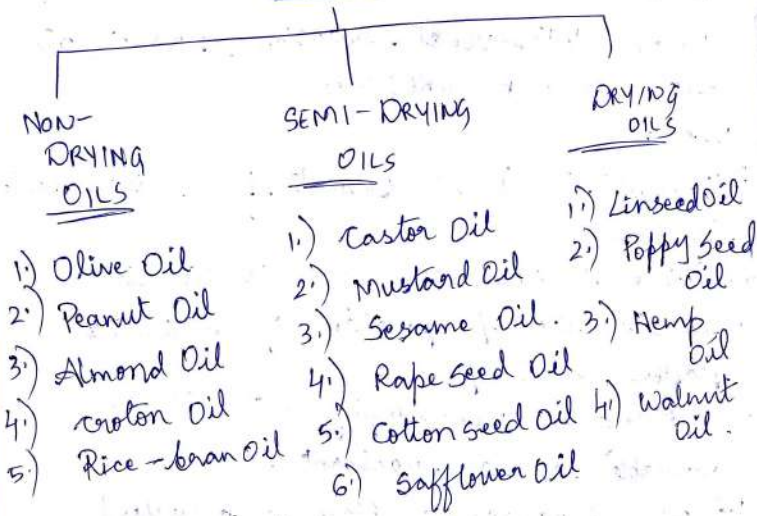 NON-
DRYING
OILS
1.) Olive Oil
2.) Peanut Oil
3.) Almond Oil
4.) croton Oil
5.) Rice-bran Oil
SEMI-DRYING
OILS
1.) Castor Oil
2.) Mustard Oil
3.) Sesame Oil.
4.) Rape Seed Oil
5.) Cotton seed Oil
6.) Safflower Oil
DRYING
OILS
1.) Linseed Oil
2.) Poppy Seed
Oil
3.) Hemp
Oil
4.) Walnut
Oil.